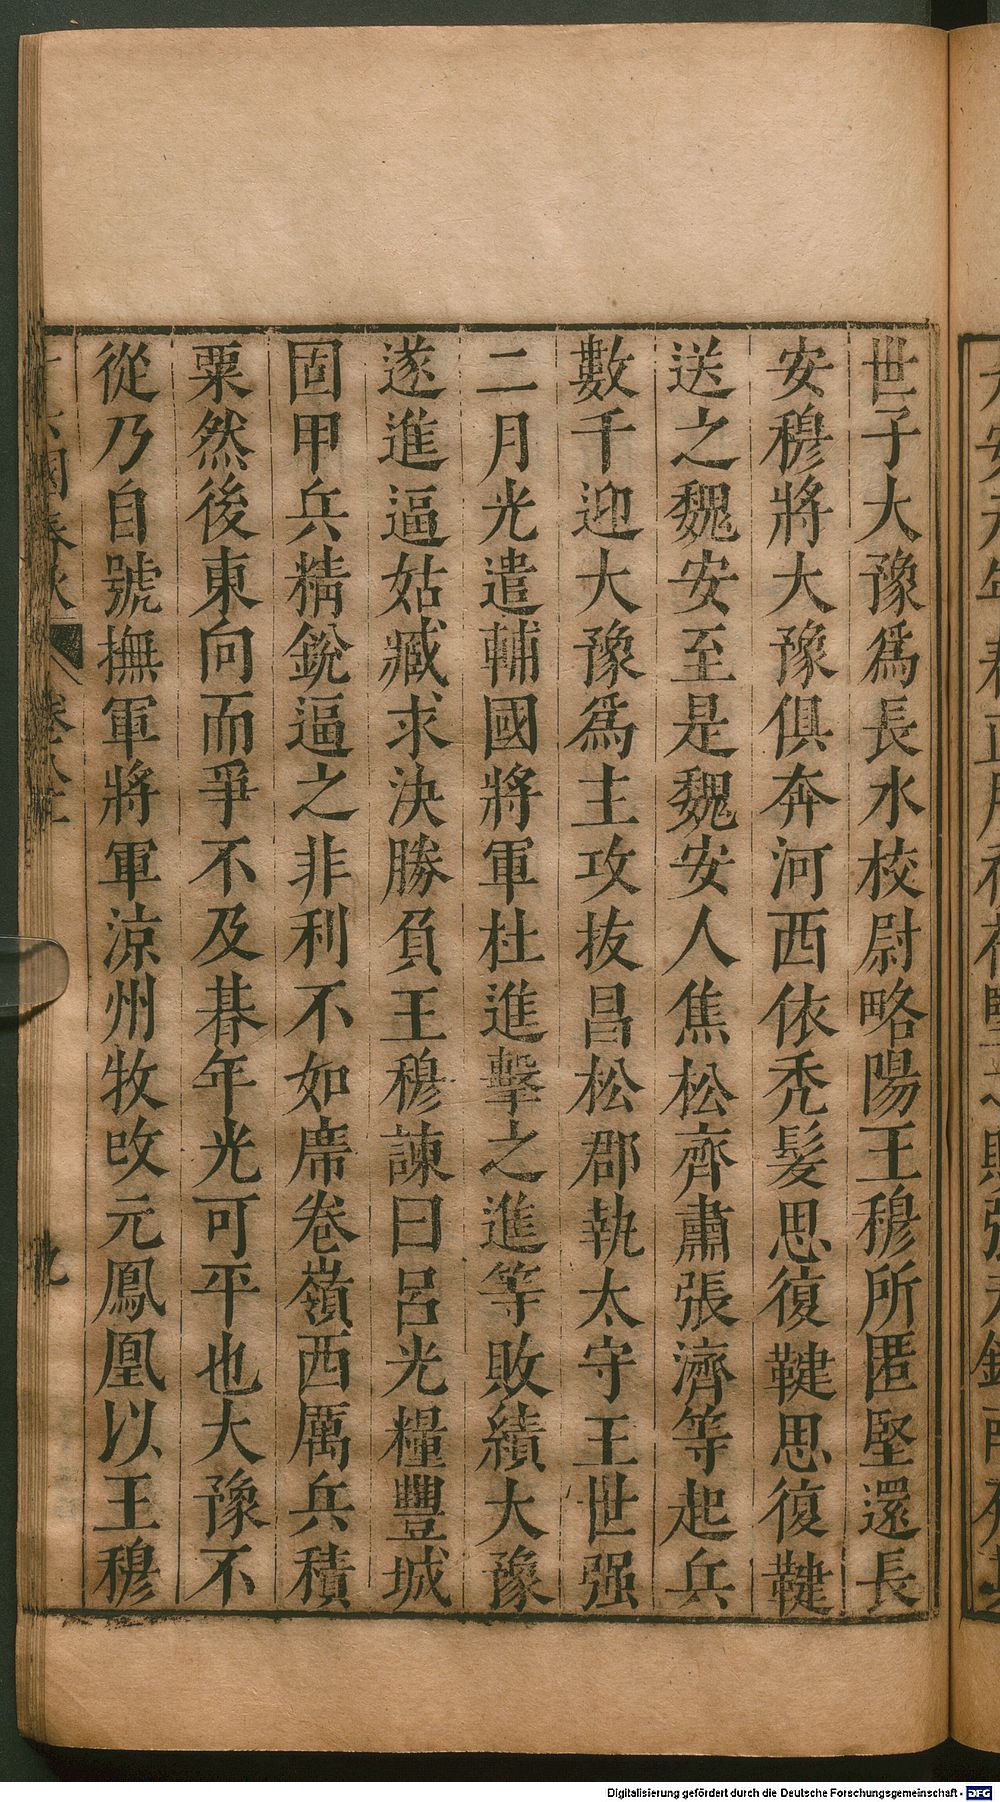 世子大豫爲長水校尉略陽王穆所匿堅還長
安穆將大豫俱奔河西依禿髮思復鞬思復鞬
送之魏安至是魏安人焦松齊肅張濟等起兵
數千迎大豫爲主攻拔昌松郡執太守王世强
二月光遣輔國將軍杜進擊之進等敗績大豫
遂進逼姑臧求決勝負王穆諫曰呂光糧豐城
固甲兵精銳逼之非利不如席卷嶺西厲兵積
粟然後東向而爭不及朞年光可平也大豫不
從乃自號撫軍將軍涼州牧改元鳳凰以王穆
國春秋
九
Digitalisierung gefördert durch die Deutsche Forschungsgemeinschaft - DFG